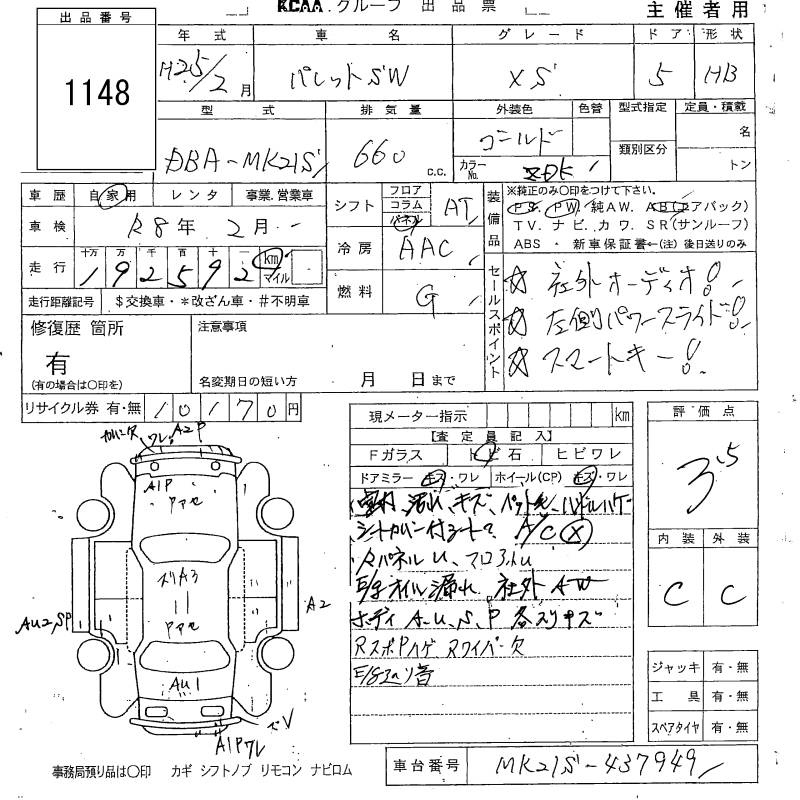 KCAA.グループ 出品票 主催者用
出品番号
1148
年式 車名 グレード ドア 形状
H25/2月 パレットSW XS 5 HB
型式 排気量 外装色 色替 型式指定 定員・積載
DBA-MK21S 660 c.c. ゴールド 名
カラーNo. 類別区分 トン
車歴 自家用 レンタ 事業.営業車
車検 R8年 2月
走行 十万 万 千 百 十 一
192592 km マイル
走行距離記号 $交換車・*改ざん車・#不明車
シフト フロア コラム パネル AT
冷房 AAC
燃料 G
装備品
※純正のみ〇印をつけて下さい。
PS. PW. 純AW. AB(エアバック)
TV. ナビ. カワ. SR(サンルーフ)
ABS ・ 新車保証書←(注) 後日送りのみ
セールスポイント
☆ 社外オーディオ!
☆ 左側パワースライド!
☆ スマートキー!
修復歴 箇所
有
(有の場合は〇印を)
注意事項
名変期日の短い方 月 日まで
リサイクル券 有・無 10170円
現メーター指示 km
【査定員記入】
Fガラス トビ石 ヒビワレ
ドアミラー キズ・ワレ ホイール(CP) キズ・ワレ
室内、汚れ、キズ ハンドルハゲ
シートカバー付 A/C ×
Rパネル U、フロアU
E/gオイル漏れ 社外 AW
ボディ A.U.S.P 各スリキズ
RスポPハゲ Rワイパー欠
評価点
3.5
内装 外装
C C
ジャッキ 有・無
工具 有・無
スペアタイヤ 有・無
ワレ、A2P
A1P
アアセ
スリA3
アアセ
AU2,SP
A2
AU1
V
A1Pワレ
事務局預り品は〇印 カギ シフトノブ リモコン ナビロム
車台番号 MK21S-437949